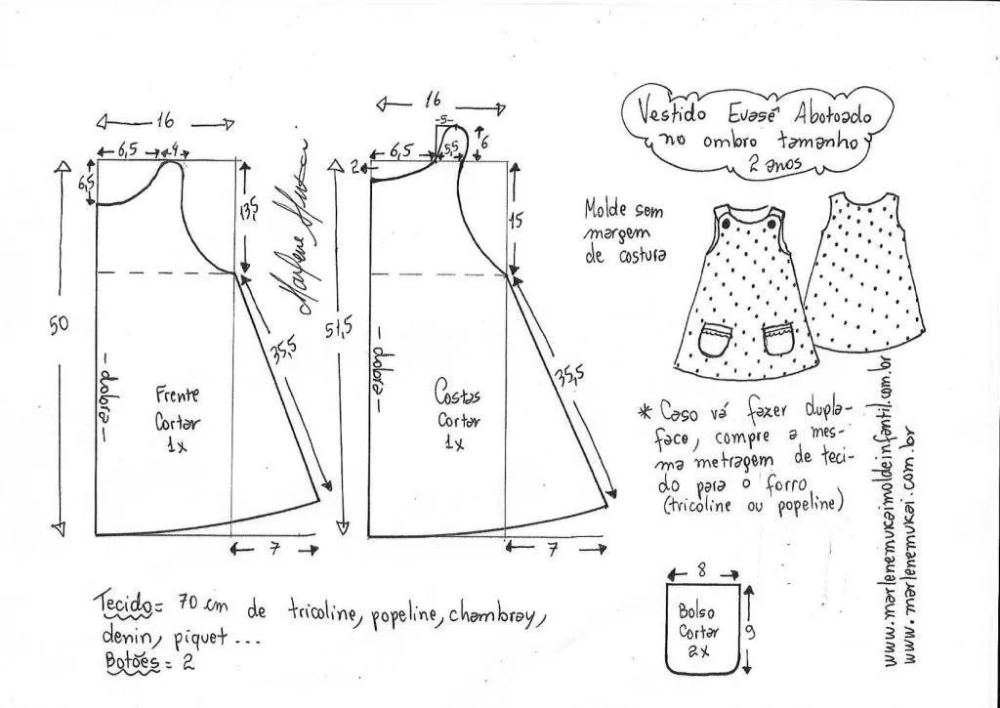 Vestido Evasê Abotoado
no ombro tamanho
2 anos
Molde sem
margem
de costura
16
6,5
4
6,5
13,5
50
35,5
dobra
Frente
Cortar
1x
7
Marlene Mukai
16
5
6,5
5,5
6
2
15
51,5
35,5
dobra
Costas
Cortar
1x
7
* Caso vá fazer dupla-
face, compre a mes-
ma metragem de teci-
do para o forro
(tricoline ou popeline)
8
Bolso
Cortar
2x
9
Tecido = 70 cm de tricoline, popeline, chambray,
denin, piquet...
Botões = 2
www.marlenemukaimoldeinfantil.com.br
www.marlenemukai.com.br